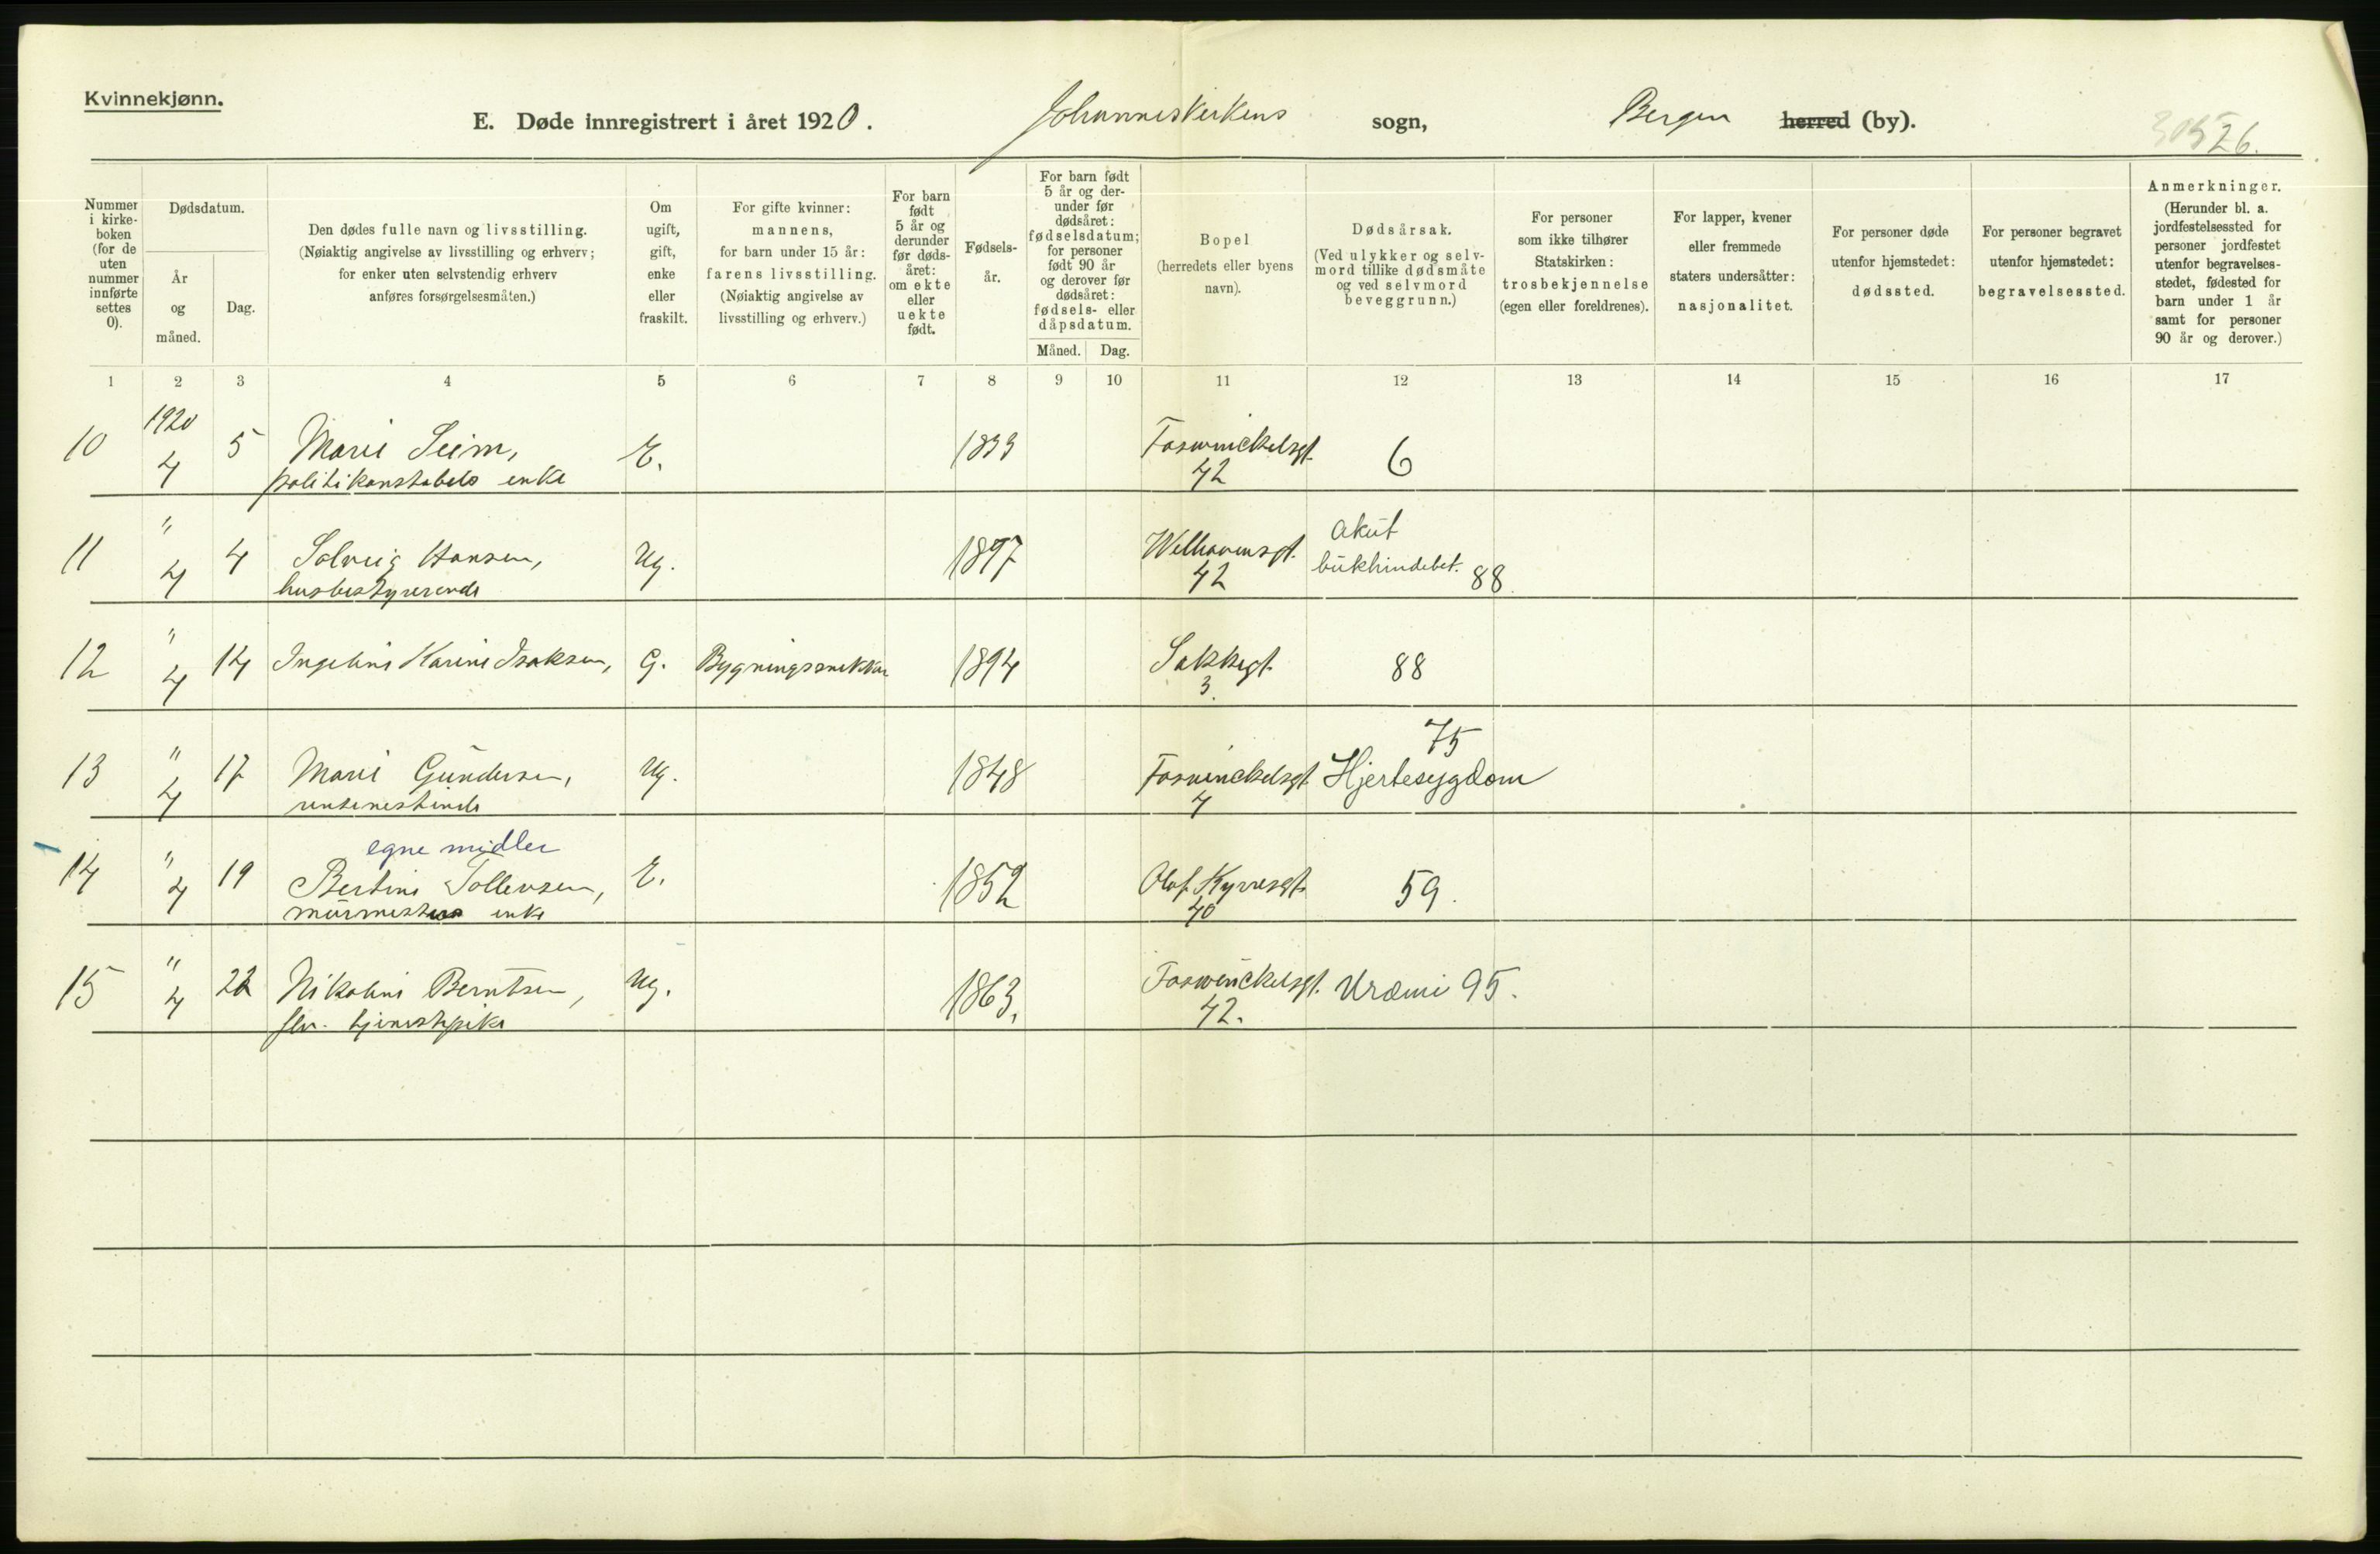 Kvinnekjønn.
E. Døde innregistrert i året 1920. Johanneskirkens sogn, Bergen herred (by). 26.
Nummer i kirke- boken (for de uten nummer innførte settes 0).
Dødsdatum.
År og måned.
Dag.
Den dødes fulle navn og livsstilling.
(Nøiaktig angivelse av livsstilling og erhverv;
for enker uten selvstendig erhverv
anføres forsørgelsesmåten.)
Om ugift, gift, enke eller fraskilt.
For gifte kvinner:
mannens,
for barn under 15 år:
farens livsstilling.
(Nøiaktig angivelse av
livsstilling og erhverv.)
For barn født 5 år og derunder før døds- året: om ekte eller uekte født.
Fødsels- år.
For barn født 5 år og der- under før dødsåret: fødselsdatum; for personer født 90 år og derover før dødsåret: fødsels- eller dåpsdatum.
Måned. Dag.
Bopel
(herredets eller byens
navn).
Dødsårsak.
(Ved ulykker og selv-
mord tillike dødsmåte
og ved selvmord
beveggrunn.)
For personer
som ikke tilhører
Statskirken:
trosbekjennelse
(egen eller foreldrenes).
For lapper, kvener
eller fremmede
staters undersåtter:
nasjonalitet.
For personer døde
utenfor hjemstedet:
dødssted.
For personer begravet
utenfor hjemstedet:
begravelsessted.
Anmerkninger.
(Herunder bl. a.
jordfestelsessted for
personer jordfestet
utenfor begravelses-
stedet, fødested for
barn under 1 år
samt for personer
90 år og derover.)
1 2 3 4 5 6 7 8 9 10 11 12 13 14 15 16 17
10 1920 4 5 Marie Seim, E. 1833 Foswinckelsgt. 42 6
politikonstabels enke
11 " 4 4 Solveig Hansen, Ug. 1897 Welhavensgt. 42 akut bukhindebet. 88
husbestyrerende
12 " 4 14 Ingeline Karine Isaksen, G. Bygningssnekker 1894 Sakkegt. 3. 88
13 " 4 17 Marie Gundersen, Ug. 1848 Foswinckelsgt. 7 75 Hjertesygdom
rentenistinde
egne midler
14 " 4 19 Bertine Tollevsen, E. 1852 Olaf Kyrresgt. 40 59.
murmesters enke
15 " 4 22 Nikoline Berntsen, Ug. 1863. Foswinckelsgt. 42. Uræmi 95.
fhv. tjenestepike